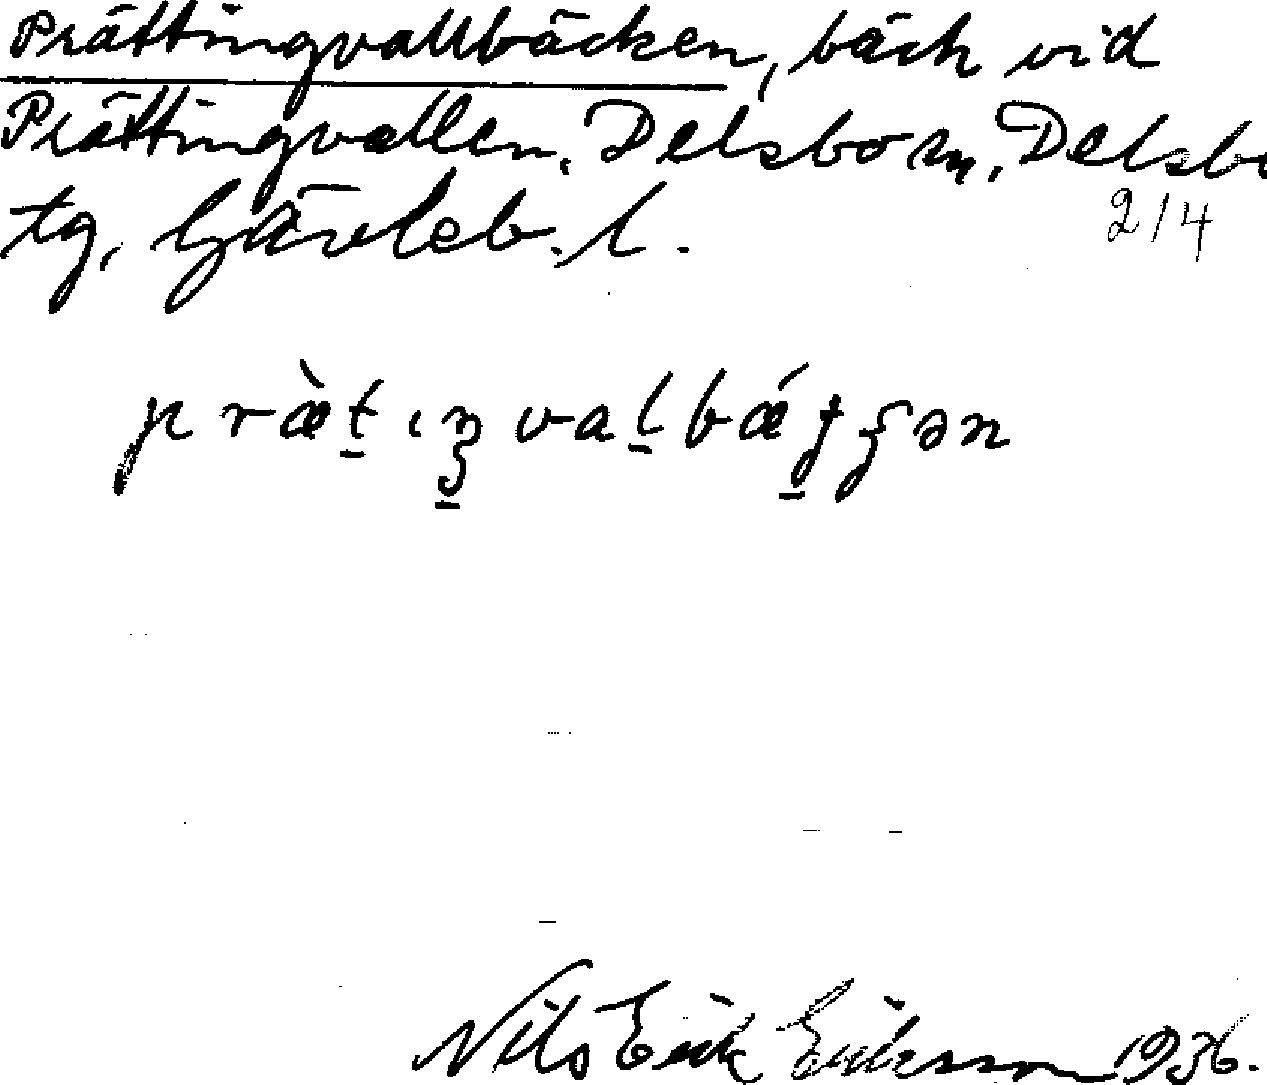 Prättingvallbäcken, bäck vid
Prättingvallen, Delsbo sn, Delsbo
tg, Gävleb. l.
2/4
præ̀t̠ıŋ̠val̠bǽ
Nils Erik Eriksson 1936.